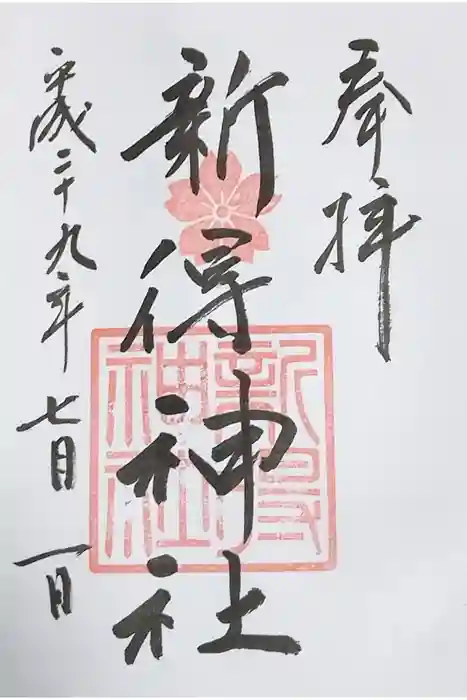 奉拝
新得神社
平成二十九年七月一日
新得
神社